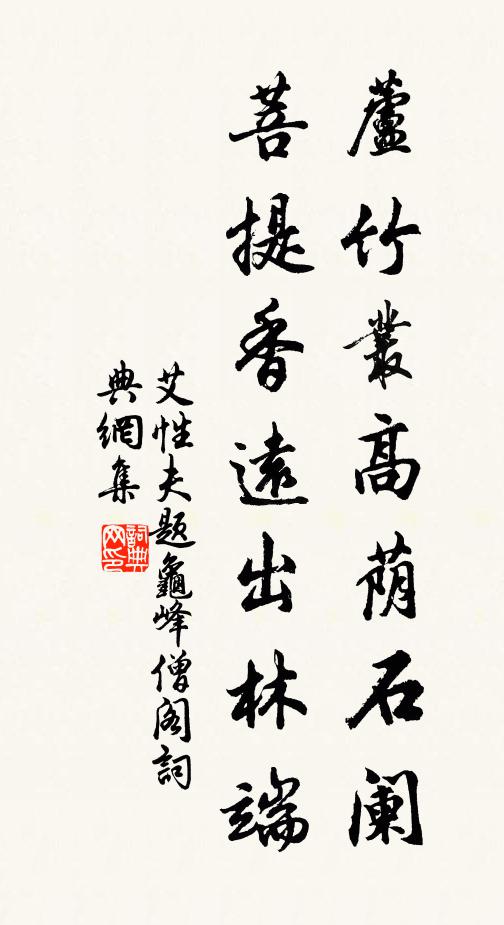 蘆竹叢高荫石阑
菩提香遠出林端
艾性夫題龜峰僧阁詞
典網集
詞典
网印